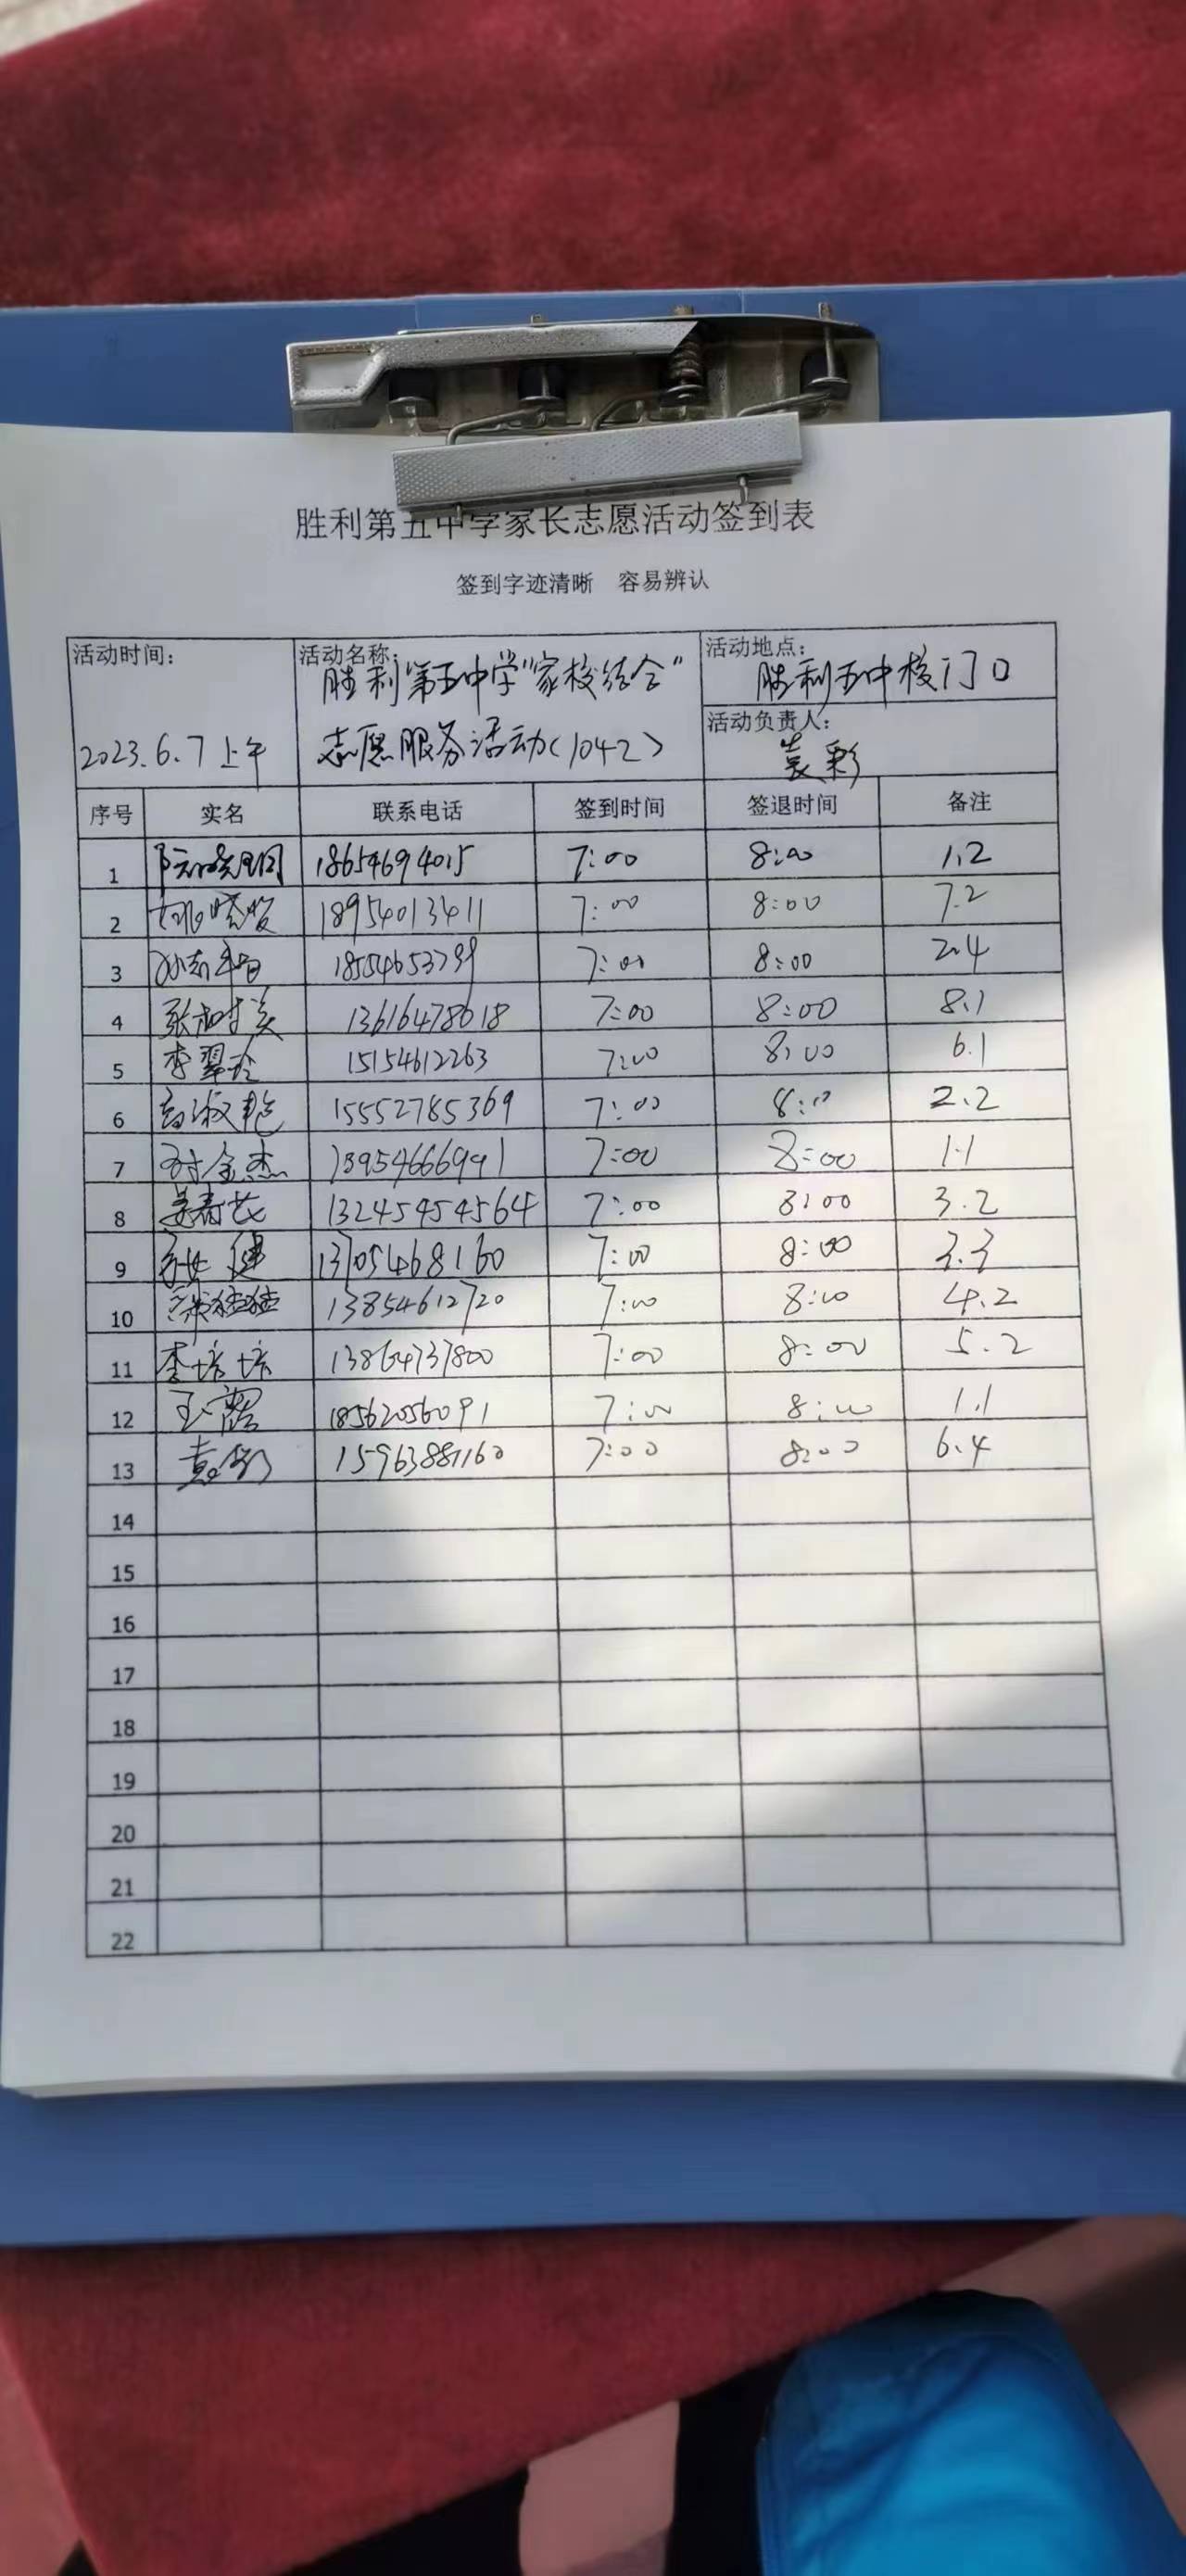 胜利第五中学家长志愿活动签到表
签到字迹清晰 容易辨认
活动时间: 活动名称: 活动地点:
胜利第五中学"家校结合" 胜利五中校门口
活动负责人:
2023.6.7上午 志愿服务活动(1042) 袁彩
序号 实名 联系电话 签到时间 签退时间 备注
1 18654694015 7:00 8:00 1.2
2 18954013411 7:00 8:00 7.2
3 7:00 8:00 2.4
4 张 7:00 8:00 8.1
5 李翠玲 15154612263 7:00 8:00 6.1
6 高淑艳 15552785369 7:00 8:00 2.2
7 金杰 13954666991 7:00 8:00 1.1
8 姜春花 13245454564 7:00 8:00 3.2
9 健 13705468160 7:00 8:00 3.3
10 13854612720 7:00 8:00 4.2
11 李培培 13864737800 7:00 8:00 5.2
12 王露 18562056091 7:00 8:00 1.1
13 袁彩 15963881160 7:00 8:00 6.4
14
15
16
17
18
19
20
21
22